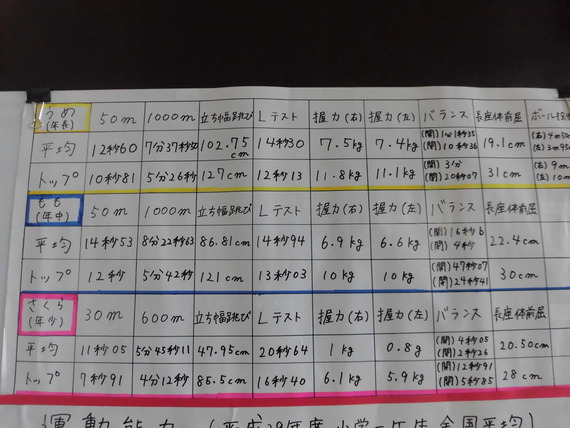 うめ (年長) 50m 1000m 立ち幅跳び Lテスト 握力(右) 握力(左) バランス 長座体前屈 ボール投
平均 12秒60 7分37秒 102.75cm 14秒30 7.5kg 7.4kg (開)1分1秒35 (閉)10秒36 19.1cm (右)4m (左)3m
トップ 10秒81 5分26秒 127cm 12秒13 11.8kg 11.1kg (開)3分 (閉)20秒07 31cm (右)9m (左)10m
もも (年中) 50m 1000m 立ち幅跳び Lテスト 握力(右) 握力(左) バランス 長座体前屈
平均 14秒53 8分22秒63 86.81cm 14秒94 6.9kg 6.6kg (開)16秒6 (閉)4秒 22.4cm
トップ 12秒 5分42秒 121cm 13秒03 10kg 10kg (開)47秒07 (閉)24秒41 30cm
さくら (年少) 30m 600m 立ち幅跳び Lテスト 握力(右) 握力(左) バランス 長座体前屈
平均 11秒05 5分45秒11 47.95cm 20秒64 1kg 0.8g (開)4秒05 (閉)2秒26 20.50cm
トップ 7秒91 4分12秒 85.5cm 16秒40 6.1kg 5.9kg (開)12秒91 (閉)5秒85 28cm
運動能力 (平成29年度 小学一年生 全国平均)